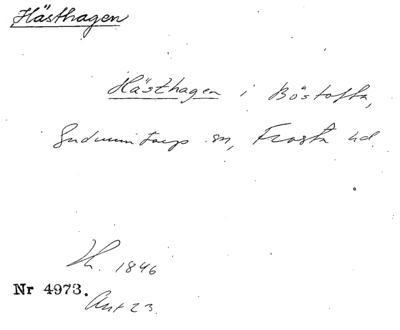 Hästhagen
Hästhagen i Böstofta,
Gudmuntorps sn, Frosta hd.
H. 1846
Nr 4973.
Ant 23.